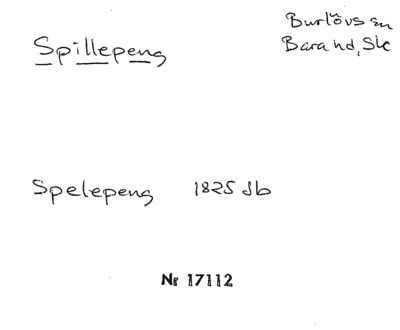 Spillepeng
Burlövs sn
Bara hd, Sk
Spelepeng 1825 Jb
Nr 17112